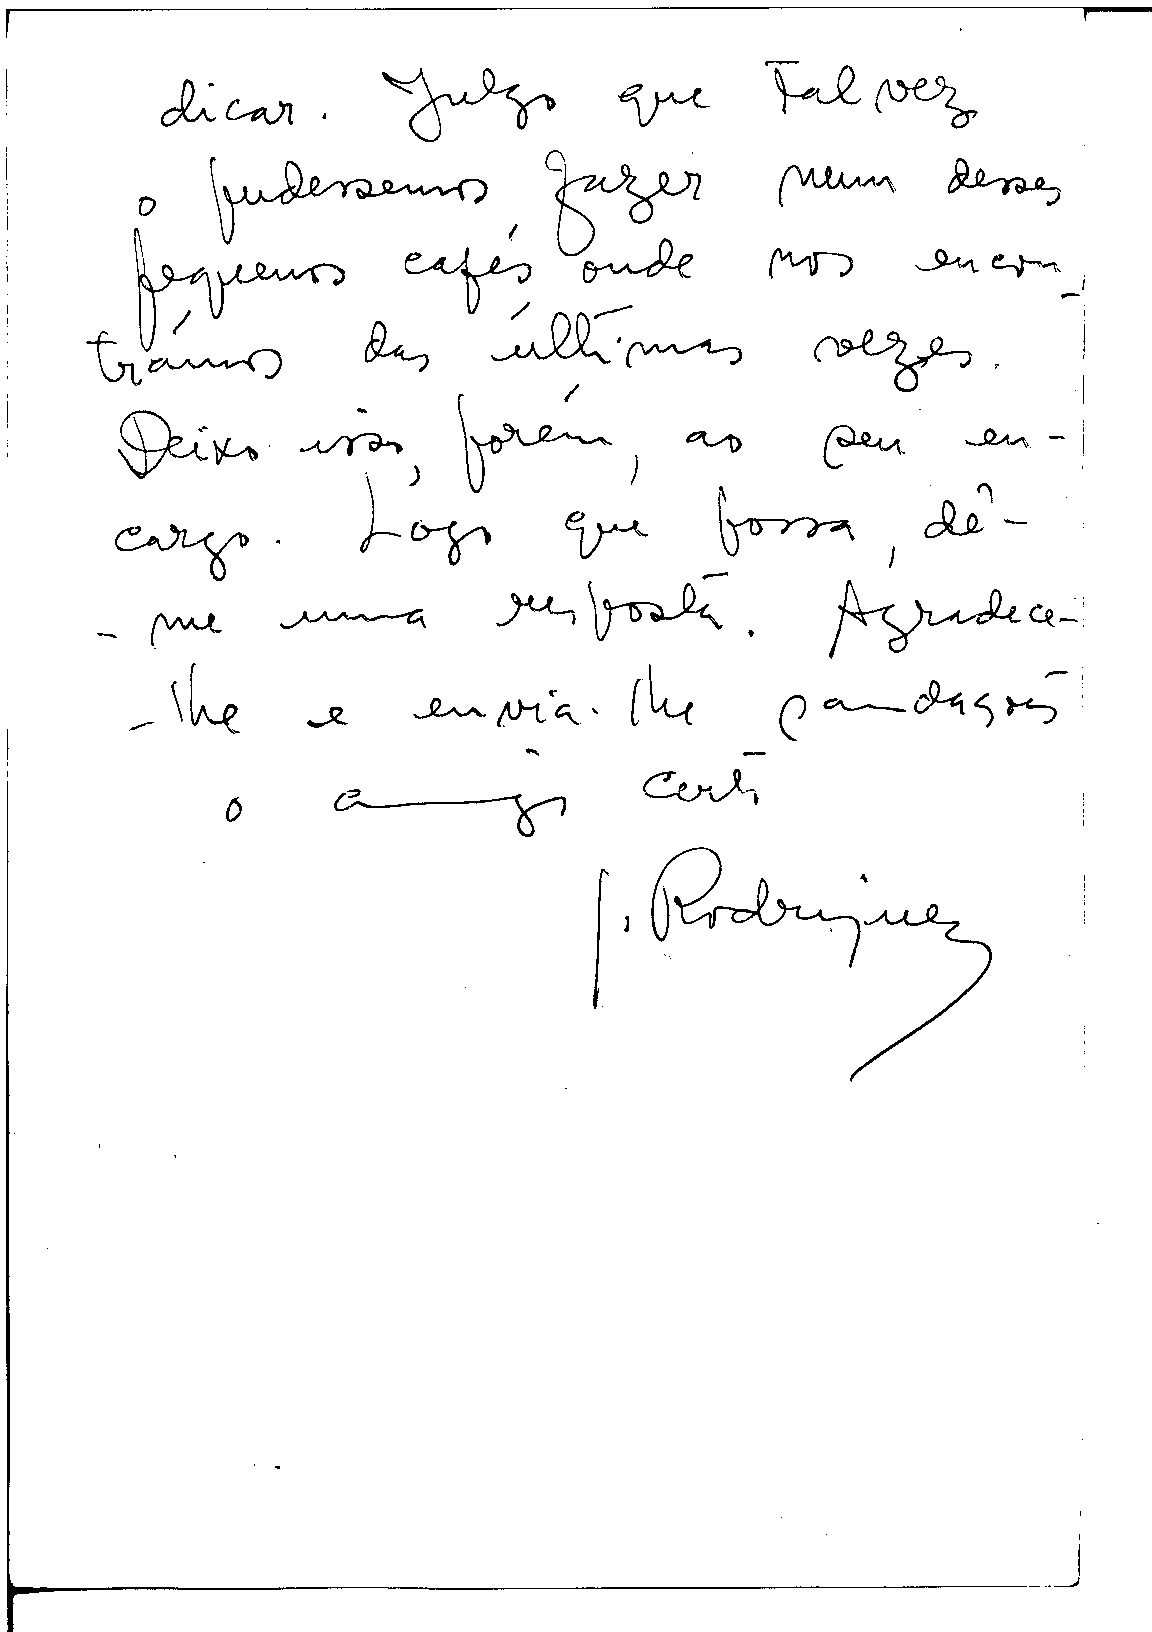 dicar. Julgo que talvez
o pudessemos fazer num desses
pequenos cafés onde nos encon-
trámos das últimas vezes.
Deixo isso, porém, ao seu en-
cargo. Logo que possa, dê-
-me uma resposta. Agradece-
-lhe e envia-lhe saudações
o amigo certo
J. Rodrigues